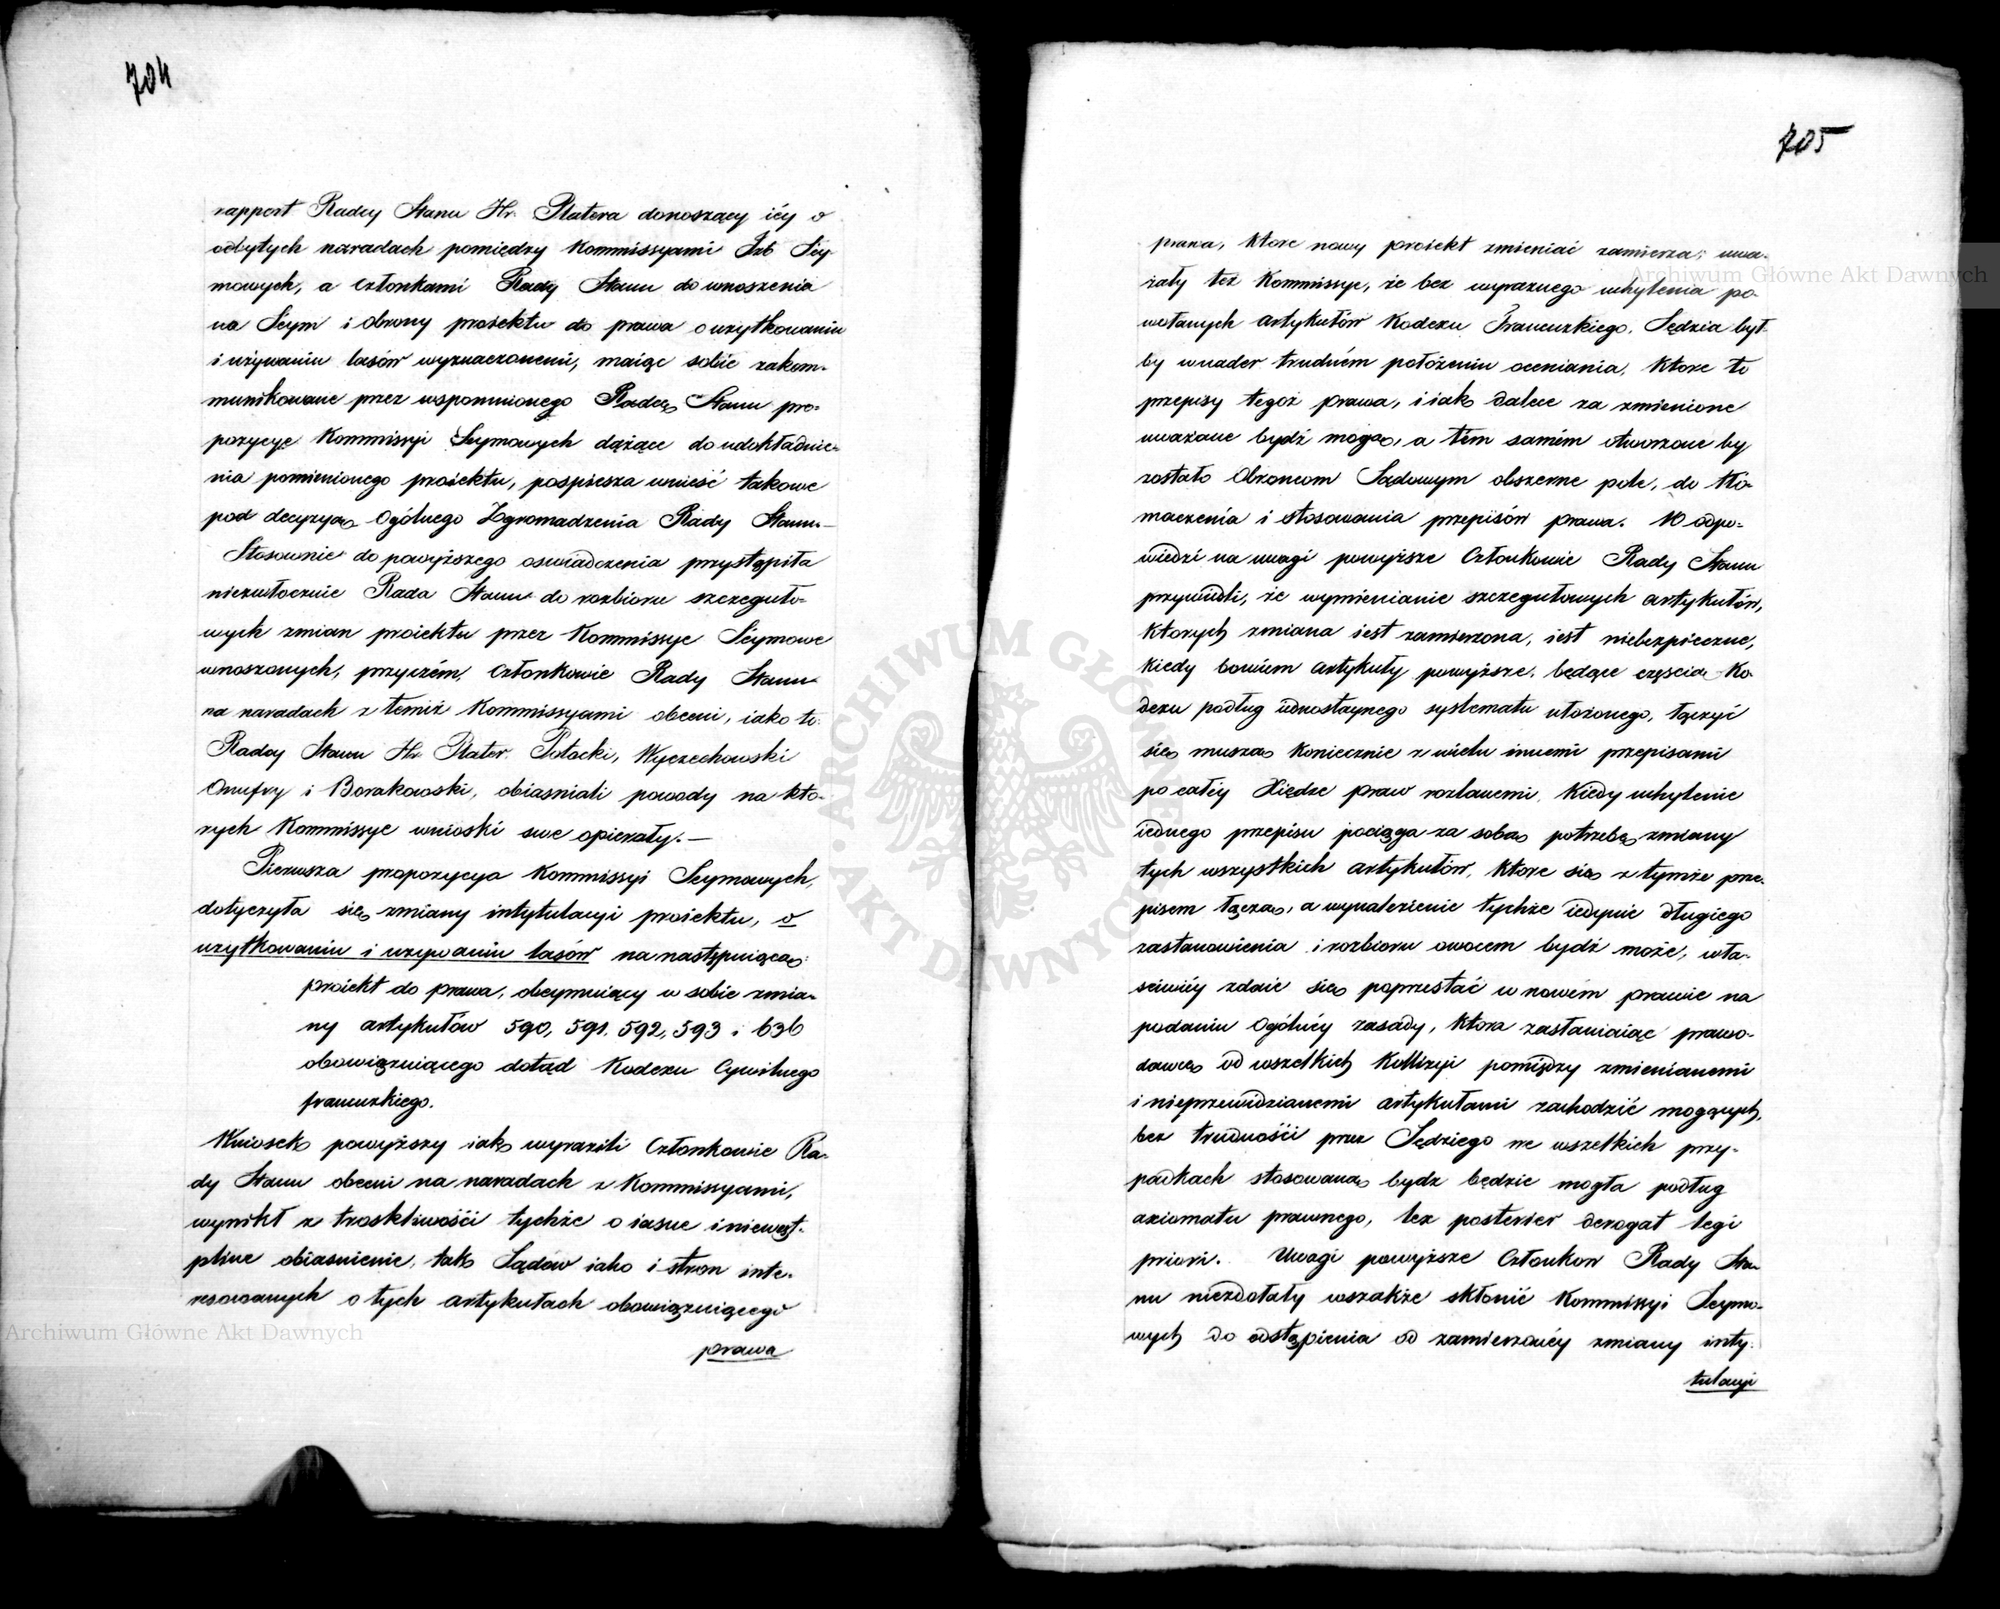 704
rapport Radcy Stanu Hr. Platera donoszący iéy o
odbytych naradach pomiędzy Kommissyami Izb Sey-
mowych, a Członkami Rady Stanu do wnoszenia
na Seym i obrony proiektu do prawa o użytkowaniu
i używaniu lasów wyznaczonemi, maiąc sobie zakom-
munikowane przez wspomnionego Radcę Stanu pro-
pozycye Kommissyi Seymowych dążące do udokładnie-
nia pomienionego proiektu, pospiesza wnieść takowe
pod decyzyą Ogólnego Zgromadzenia Rady Stanu.—
Stosownie do powyższego oswiadczenia przystąpiła
niezwłocznie Rada Stanu do rozbioru szczeguło-
wych zmian proiektu przez Kommissye Seymowe
wnoszonych, przyczém, Członkowie Rady Stanu
na naradach z temiż Kommissyami obecni, iako to:
Radcy Stanu Hr. Plater, Potocki, Wyczechowski
Onufry i Borakowski, obiasniali powody na któ-
rych Kommissye wnioski swe opierały.—
Pierwsza propozycya Kommissyi Seymowych,
dotyczyła się zmiany intytulacyi proiektu, o
użytkowaniu i używaniu lasów na następuiącą:
proiekt do prawa, obeymuiący w sobie zmia-
ny artykułów 590, 591, 592, 593 i 636
obowiązuiącego dotąd Kodexu Cywilnego
francuzkiego.
Wniosek powyższy iak wyrazili Członkowie Ra-
dy Stanu obecni na naradach z Kommissyami,
wynikł z troskliwości tychże o iasne i niewąt-
pliwe obiasnienie, tak Sądów iako i stron inte-
resowanych o tych artykułach obowiązuiącego
prawa
705
prawa, które nowy proiekt zmieniać zamierza; uwa-
żały też Kommissye, że bez wyraznego uchylenia po-
wołanych artykułów Kodexu Francuzkiego, Sędzia był-
by w nader trudném położeniu ocenienia, które to
przepisy tegoż prawa, i iak dalece za zmienione
uważane bydź mogą, a tém samém otworzone by
zostało Obroncom Sądowym obszerne pole, do tło-
maczenia i stosowania przepisów prawa. W odpo-
wiedzi na uwagi powyższe Członkowie Rady Stanu
przywiedli, że wymienianie szczegułowych artykułów,
których zmiana iest zamierzona, iest niebezpieczne,
kiedy bowiem artykuły powyższe, będące częścią Ko-
dexu podług iednostaynego systematu ułożonego, łączyć
się muszą koniecznie z wielu innemi przepisami
po całéy Xiędze praw rozlanemi. Kiedy uchylenie
iednego przepisu pociąga za sobą potrzebę zmiany
tych wszystkich artykułów, które się z tymże prze-
pisem łączą, a wynalezienie tychże iedynie długiego
zastanowienia i rozbioru owocem bydź może, wła-
ściwiéy zdaie się poprzestać w nowém prawie na
podaniu Ogólnéy zasady, która zasłaniaiąc prawo-
dawcę od wszelkich Kollizyi pomiędzy zmienianemi
i nieprzewidzianemi artykułami zachodzić mogących,
bez trudności przez Sędziego we wszelkich przy-
padkach stosowaną bydz będzie mogła podług
axiomatu prawnego, lex posterior derogat legi
priori. Uwagi powyższe Członków Rady Sta-
nu niezdołały wszakże skłonić Kommissyi Seymo-
wych do odstąpienia od zamierzonéy zmiany inty-
tulacyi
Archiwum Główne Akt Dawnych
Archiwum Główne Akt Dawnych
ARCHIWUM GŁÓWNE AKT DAWNYCH